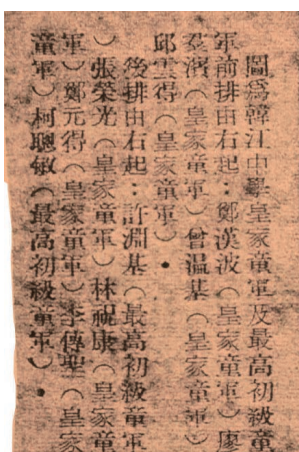 圖爲韓江中學皇家童軍及最高初級童
軍前排由右起：鄭漢波（皇家童軍）廖
羣濱（皇家童軍）曾温基（皇家童軍）
邱雲得（皇家童軍）．
後排由右起：許淵基（最高初級童軍
）張榮光（皇家童軍）林祝康（皇家童
軍）鄭元得（皇家童軍）李傳聖（皇家
童軍）柯聰敏（最高初級童軍）．